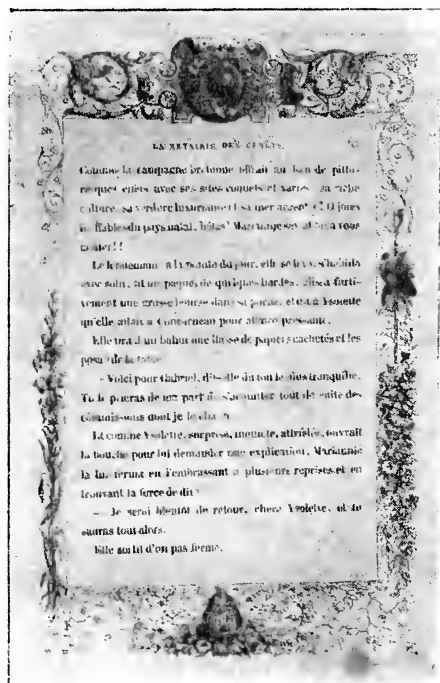 LA METAIRIE DES GENETS.
Comme la campagne bretonne offrait un bon de pitto-
resques effets avec ses sites coquets et variés, sa riche
culture, sa verdure luxuriante et sa mer O joies
du pays natal, hélas! Marianne à vous
Le lendemain, à la pointe du jour, elle se leva, s'habilla
avec soin, fit un paquet de quelques hardes, glissa furti-
vement une grosse bourse dans sa poche, et dit à Ysolette
qu'elle allait à Concarneau pour affaire pressante.
Elle tira d'un bahut une liasse de papiers cachetés et les
posa sur la table.
— Voici pour Gabriel, dit-elle du ton le plus tranquille.
Tu le prieras de ma part de s'acquitter tout de suite des
commissions dont je le charge.
Et comme Ysolette, surprise, inquiète, attristée, ouvrait
la bouche pour lui demander une explication, Marianne
la lui ferma en l'embrassant à plusieurs reprises et en
trouvant la force de dire
— Je serai bientôt de retour, chère Ysolette, et tu
sauras tout alors.
Elle sortit d'un pas ferme.